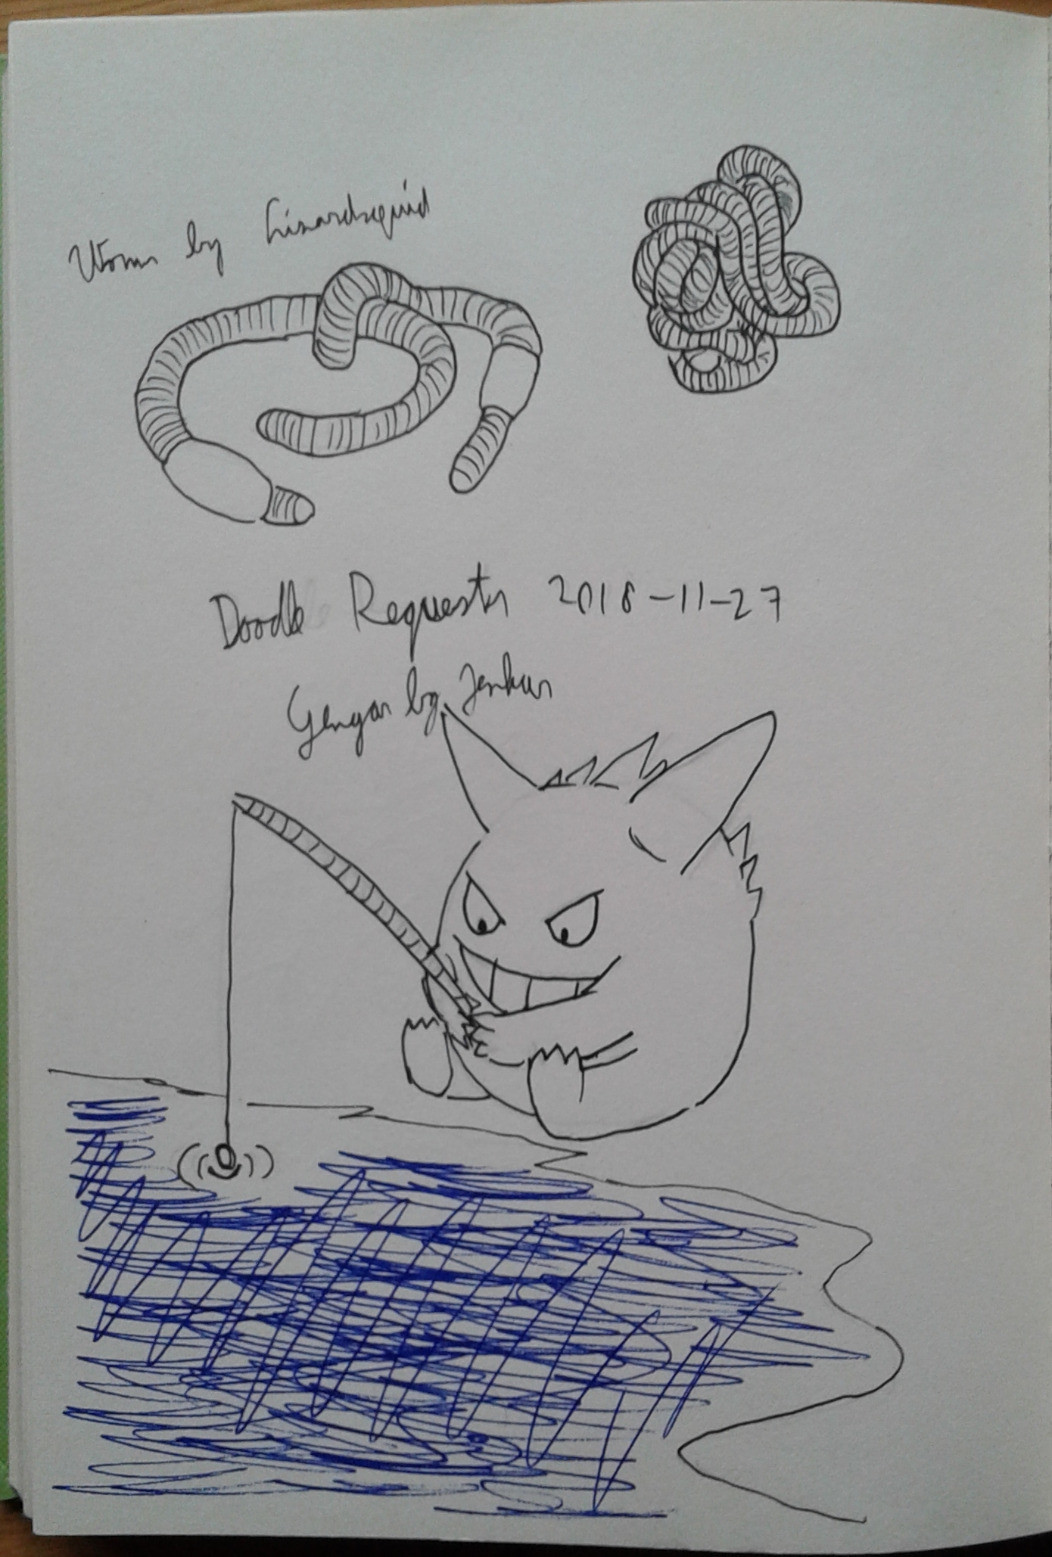 Worms by Lizardsquid
Doodle Requests 2018-11-27
Gengar by Jenkar